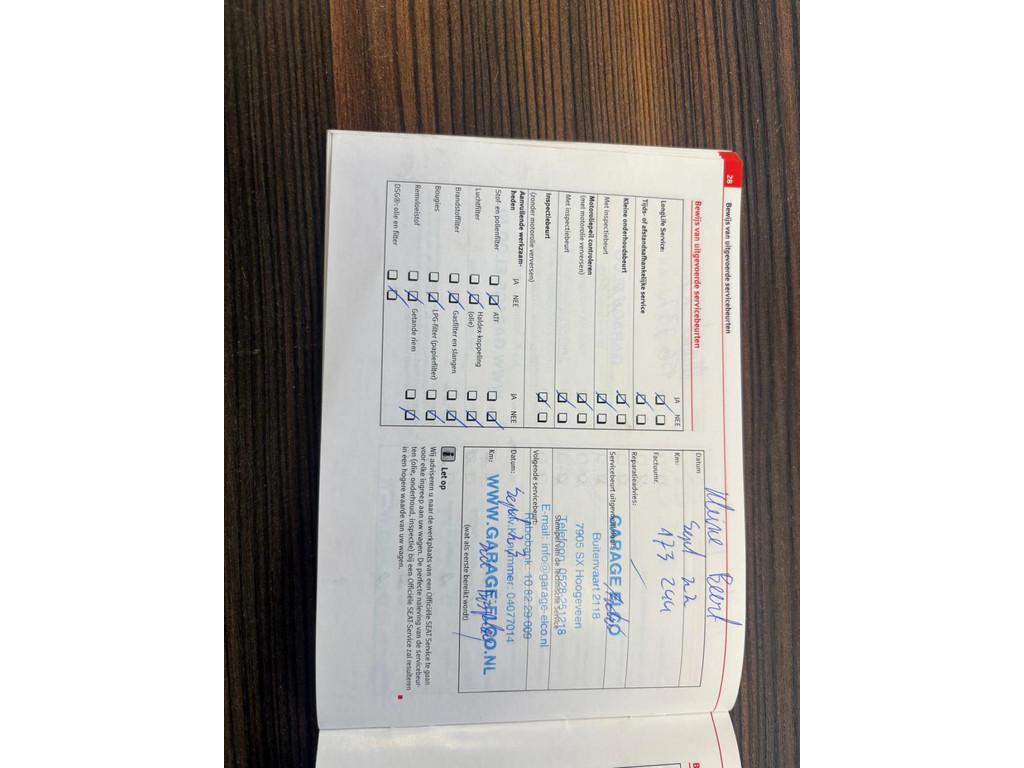 28
Bewijs van uitgevoerde servicebeurten
Bewijs van uitgevoerde servicebeurten
JA NEE
LongLife Service:
Tijds- of afstandsafhankelijke service
Kleine onderhoudsbeurt
Met inspectiebeurt
Motoroliepeil controleren
(met motorolie verversen)
Met inspectiebeurt
Inspectiebeurt
(zonder motorolie verversen)
Aanvullende werkzaam-
heden
JA NEE
JA NEE
Stof- en pollenfilter
ATF
Luchtfilter
Haldex-koppeling
(olie)
Brandstoffilter
Gasfilter en slangen
Bougies
LPG-filter (papierfilter)
Remvloeistof
Getande riem
DSG®: olie en filter
Kleine Beurt
Datum
Sept
Km:
173 244
Factuurnr.
Reparatieadvies:
Servicebeurt uitgevoerd door:
GARAGE ELCO
Buitenvaart 2118
7905 SX Hoogeveen
Stempel van de Technische Service
Telefoon 0528-251218
E-mail: info@garage-elco.nl
Volgende servicebeurt:
Rabobank 10.82.29.009
Datum:
Sept
K.v.K.nummer: 04077014
Km:
WWW.GARAGE-ELCO.NL
(wat als eerste bereikt wordt)
i Let op
Wij adviseren u naar de werkplaats van een Officiële SEAT Service te gaan
voor elke ingreep aan uw wagen. De perfecte naleving van de servicebeur-
ten (olie, onderhoud, inspectie) bij een Officiële SEAT Service zal resulteren
in een hogere waarde van uw wagen.